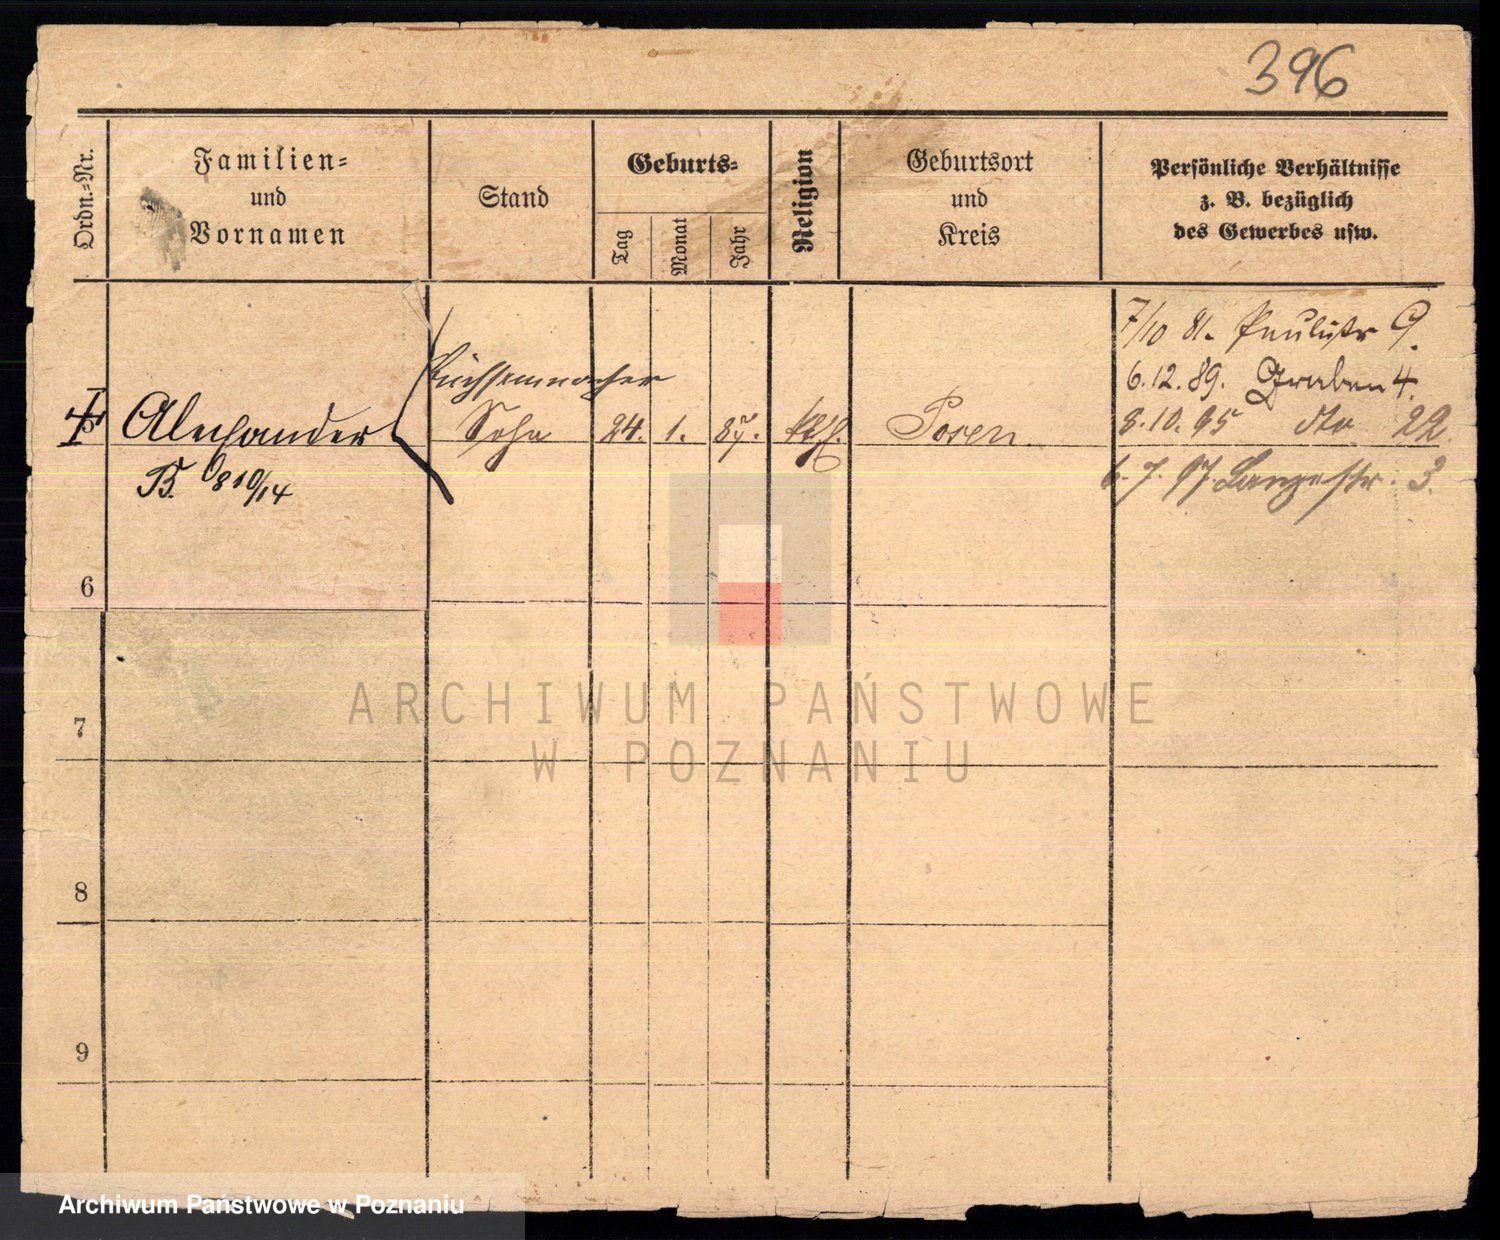 396
Ordn.-Nr.
Familien-
und
Vornamen
Stand
Geburts-
Tag
Monat
Jahr
Religion
Geburtsort
und
Kreis
Persönliche Verhältnisse
z. B. bezüglich
des Gewerbes usw.
7/10 81. Paulistr 9.
6.12.89. Graben 4.
8.10.95 dto 22
6.7.97. Langestr. 3.
Büchsenmacher
Alexander
Sohn
24. 1. 87. kth.
Posen
B. 810/14
6
7
8
9
ARCHIWUM PAŃSTWOWE
W POZNANIU
Archiwum Państwowe w Poznaniu